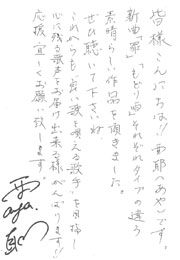 皆様こんにちは!!亜耶〈あや〉です。
新曲「罪」「もどり酒」それぞれタイプの違う
素晴らしい作品を頂きました。
ぜひ聴いて下さいね
これからも良い歌を唄える歌手を目指し
心に残る歌声をお届け出来る様がんばります!!
応援宜しくお願い致します。
aya.